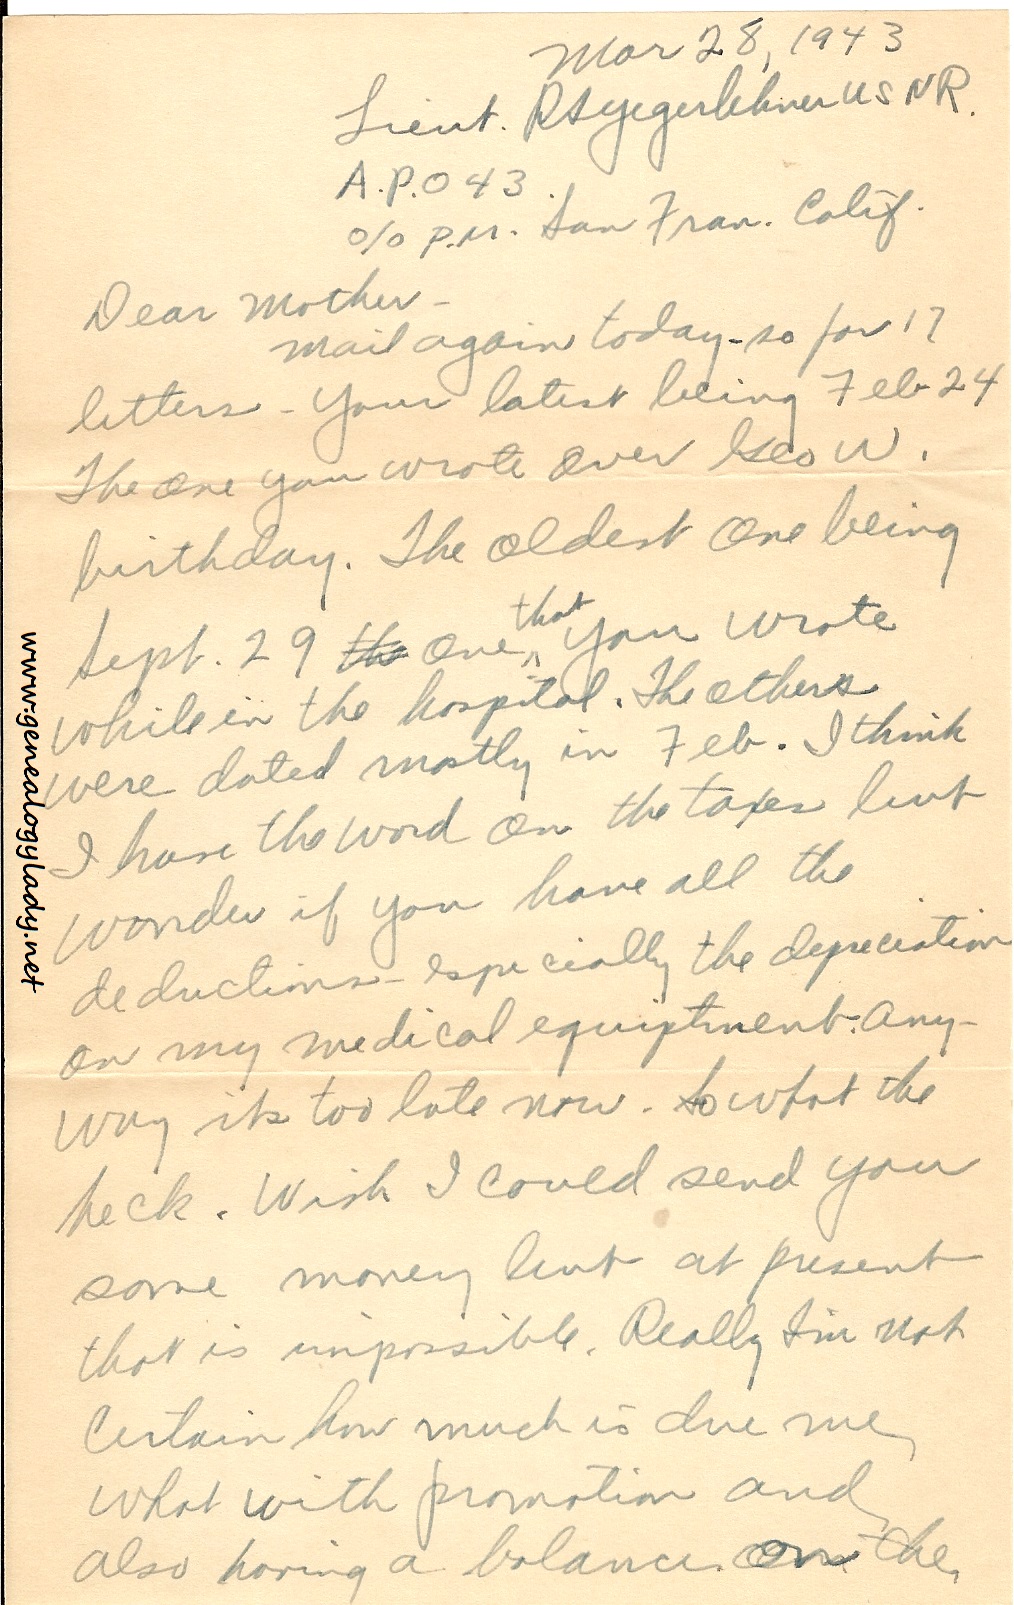 Mar 28, 1943
Lieut. R S Yegerlehner USNR.
A.P.O 43.
c/o P.M. San Fran. Calif.
Dear Mother -
Mail again today - so far 17
letters - Your latest being Feb 24
The one you wrote over Geo W.
birthday. The oldest one being
Sept. 29 the one that you wrote
while in the hospital. The others
were dated mostly in Feb. I think
I have the word on the taxes but
wonder if you have all the
deductions - especially the depreciation
on my medical equiptment. Any-
way its too late now. So what the
heck. Wish I could send you
some money but at present
that is impossible. Really I'm not
certain how much is due me,
what with promotion and,
also having a balance on the,
www.genealogylady.net